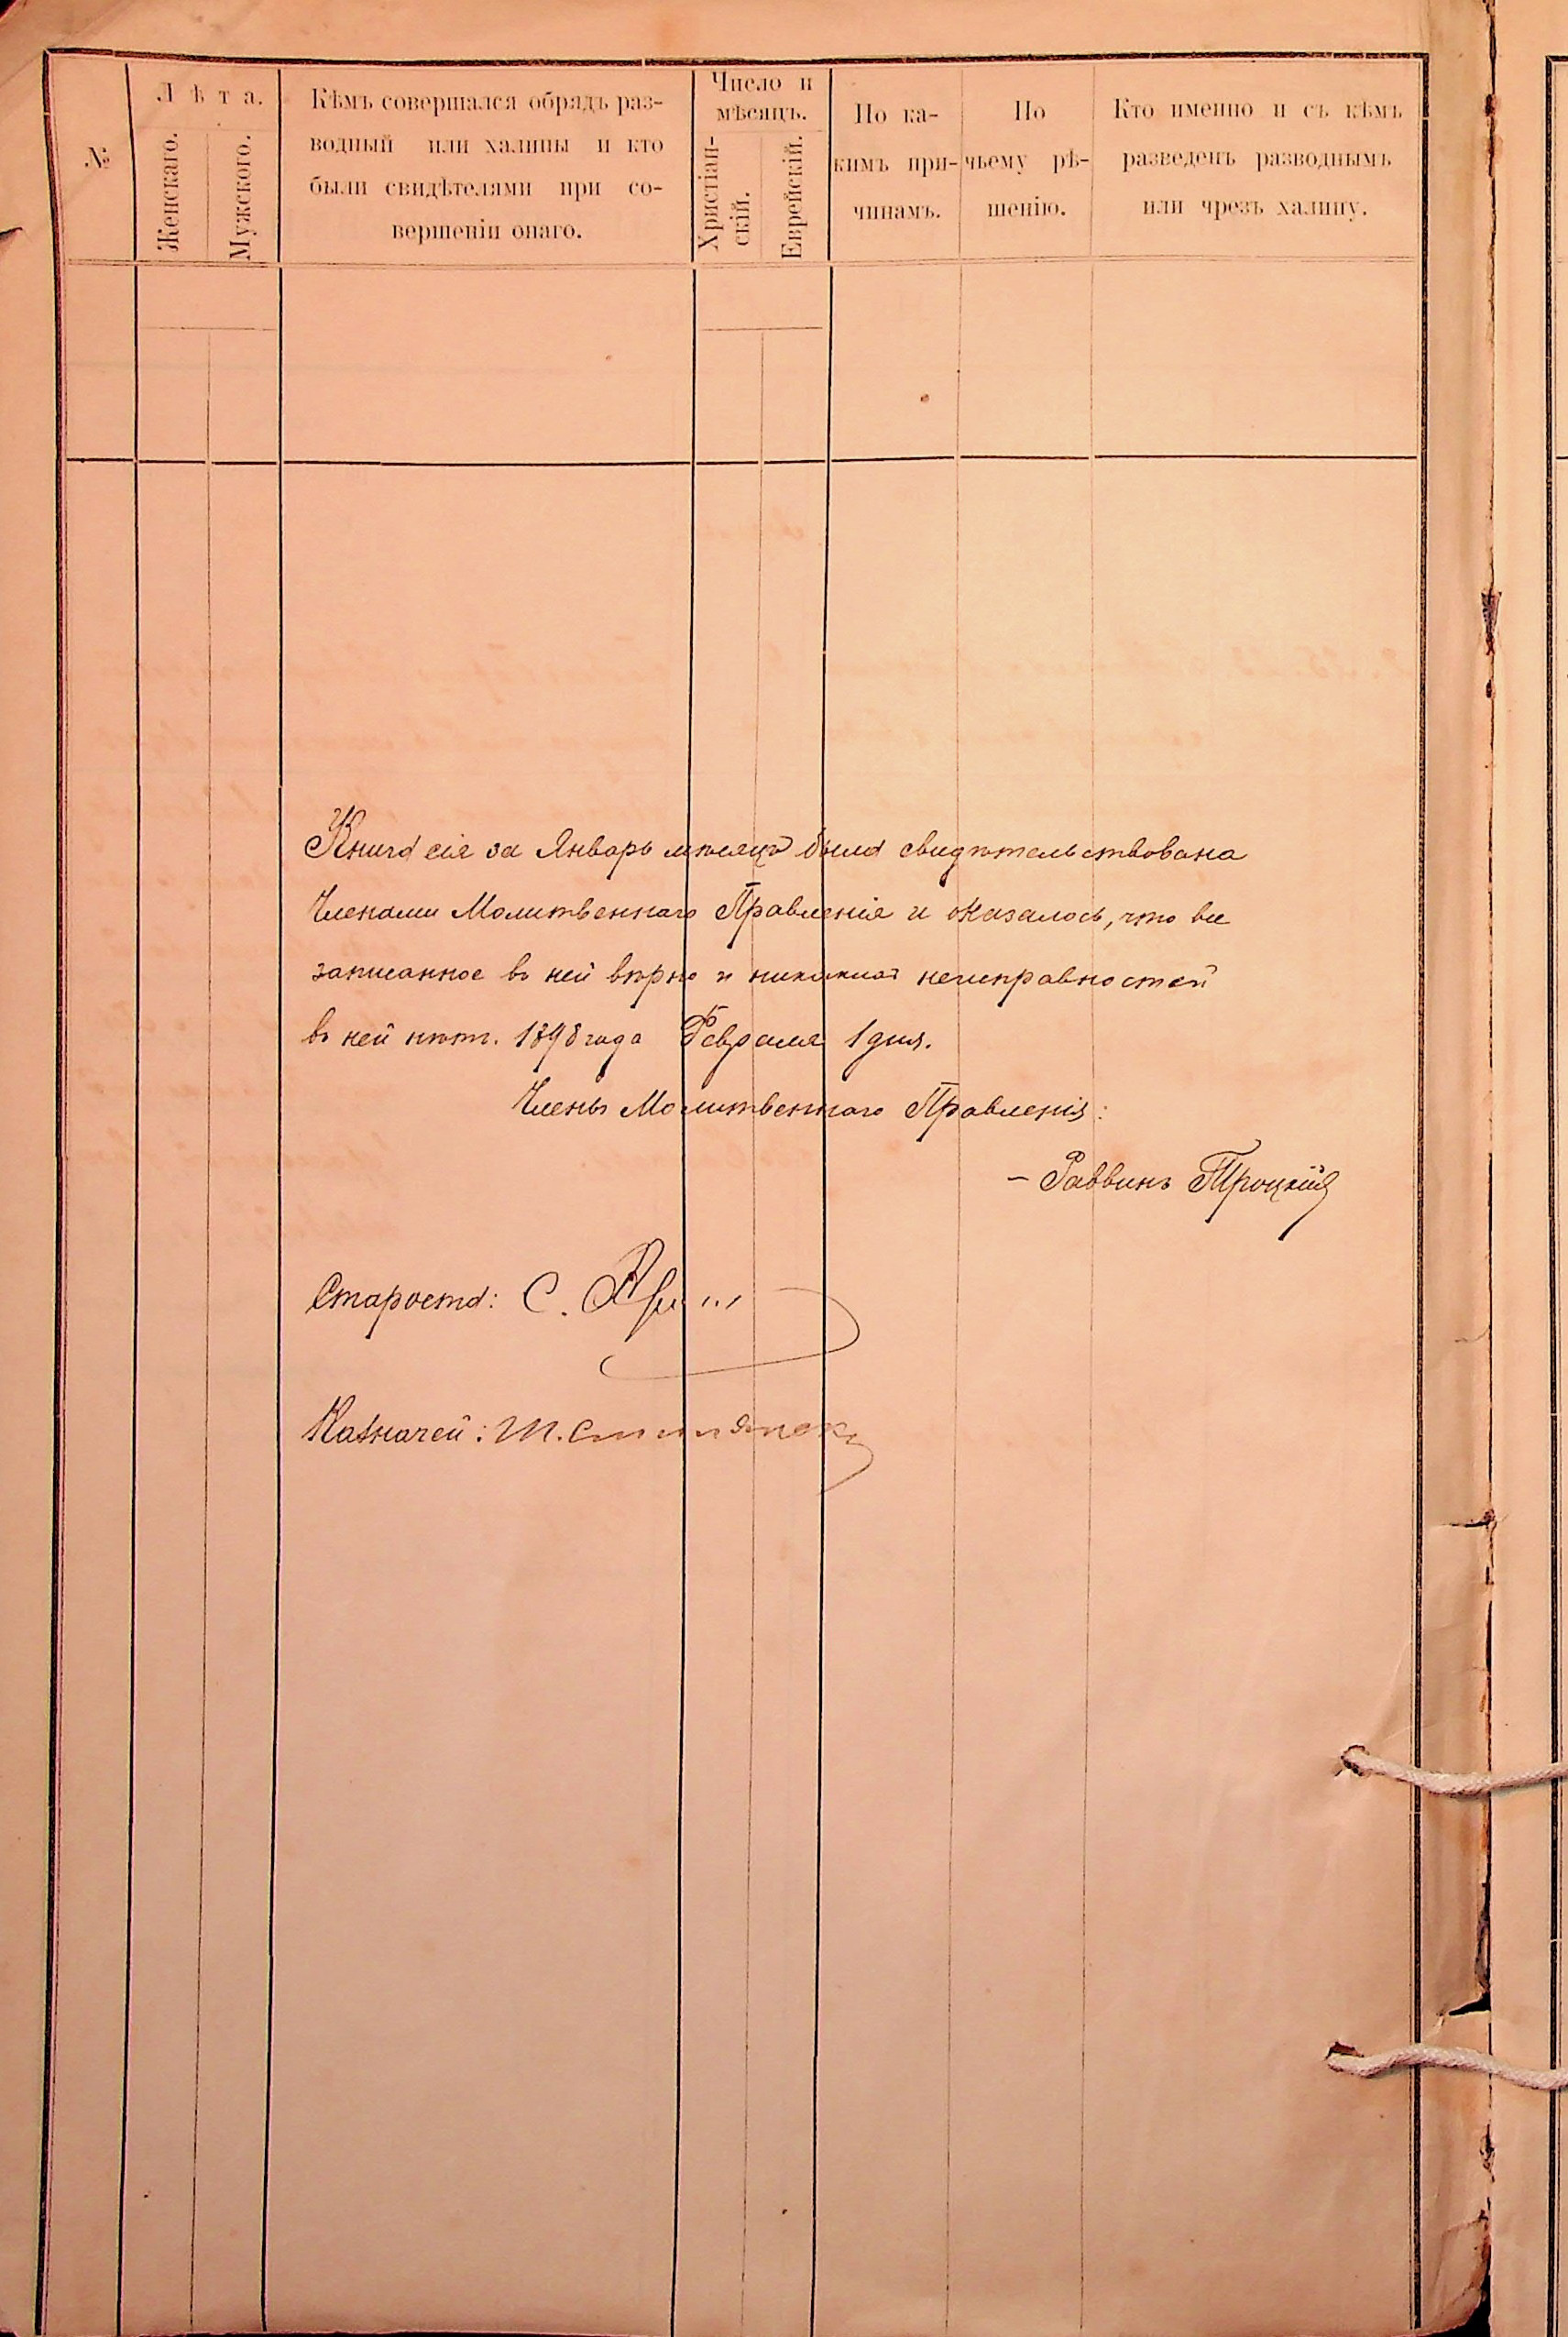 №
Лѣта.
Женскаго.
Мужского.
Кѣмъ совершался обрядъ раз-
водный или халицы и кто
были свидѣтелями при со-
вершеніи онаго.
Число и
мѣсяцъ.
Христіан-
скій.
Еврейскій.
По ка-
кимъ при-
чинамъ.
По
чьему рѣ-
шенію.
Кто именно и съ кѣмъ
разведенъ разводнымъ
или чрезъ халицу.
Книга сія за Январь мѣсяцъ была свидѣтельствована
Членами Молитвеннаго Правленія и оказалось, что все
записанное въ ней вѣрно и никакихъ неисправностей
въ ней нѣтъ. 1898 года Февраля 1 дня.
Члены Молитвеннаго Правленія:
– Раввинъ Троцкій
Староста: С.
Казначей: